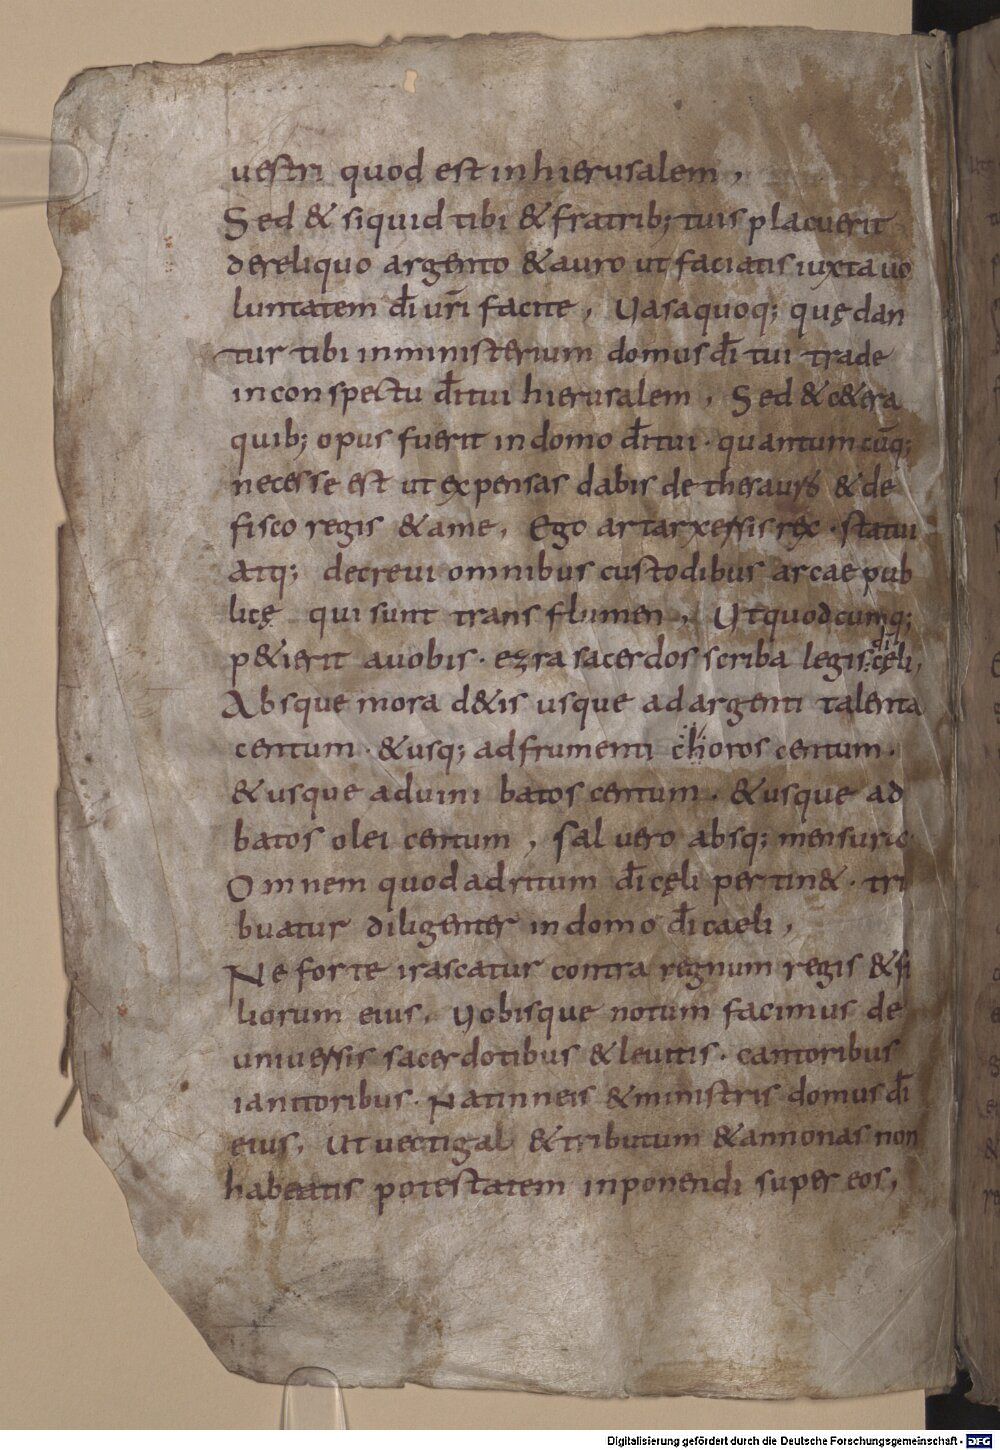 uestri quod est inhierusalem,
Sed & siquid tibi & fratrib; tuis placuerit
dereliquo argento & auro ut faciatis iuxta uo
luntatem dī ur̄i facite, Uasa quoq; quę dan
tur tibi inministerium domus dī tui trade
inconspectu dī tui hierusalem, Sed & c&era
quib; opus fuerit indomo dī tui · quantumcūq;
necesse est ut expensas dabis de thesauris & de
fisco regis & ame, Ego artarxessis rex · statui
atq; decreui omnibus custodibus arcae pub
licę qui sunt trans flumen, Ut quodcumq;
p&ierit auobis · ezra sacerdos scriba legis dī cęli,
Absque mora d&is usque ad argenti talenta
centum · & usq; ad frumenti choros centum ·
& usque aduini batos centum · & usque ad
batos olei centum, sal uero absq; mensura
Omnem quod adritum dī cęli pertin& · tri
buatur diligenter indomo dī caeli,
Ne forte irascatur contra regnum regis & fi
liorum eius, Uobisque notum facimus de
uniuersis sacerdotibus & leuitis · cantoribus
ianitoribus · Natinneis & ministris domus dī
eius, Ut uectigal & tributum & annonas non
habeatis potestatem inponendi super eos,
Digitalisierung gefördert durch die Deutsche Forschungsgemeinschaft - DFG